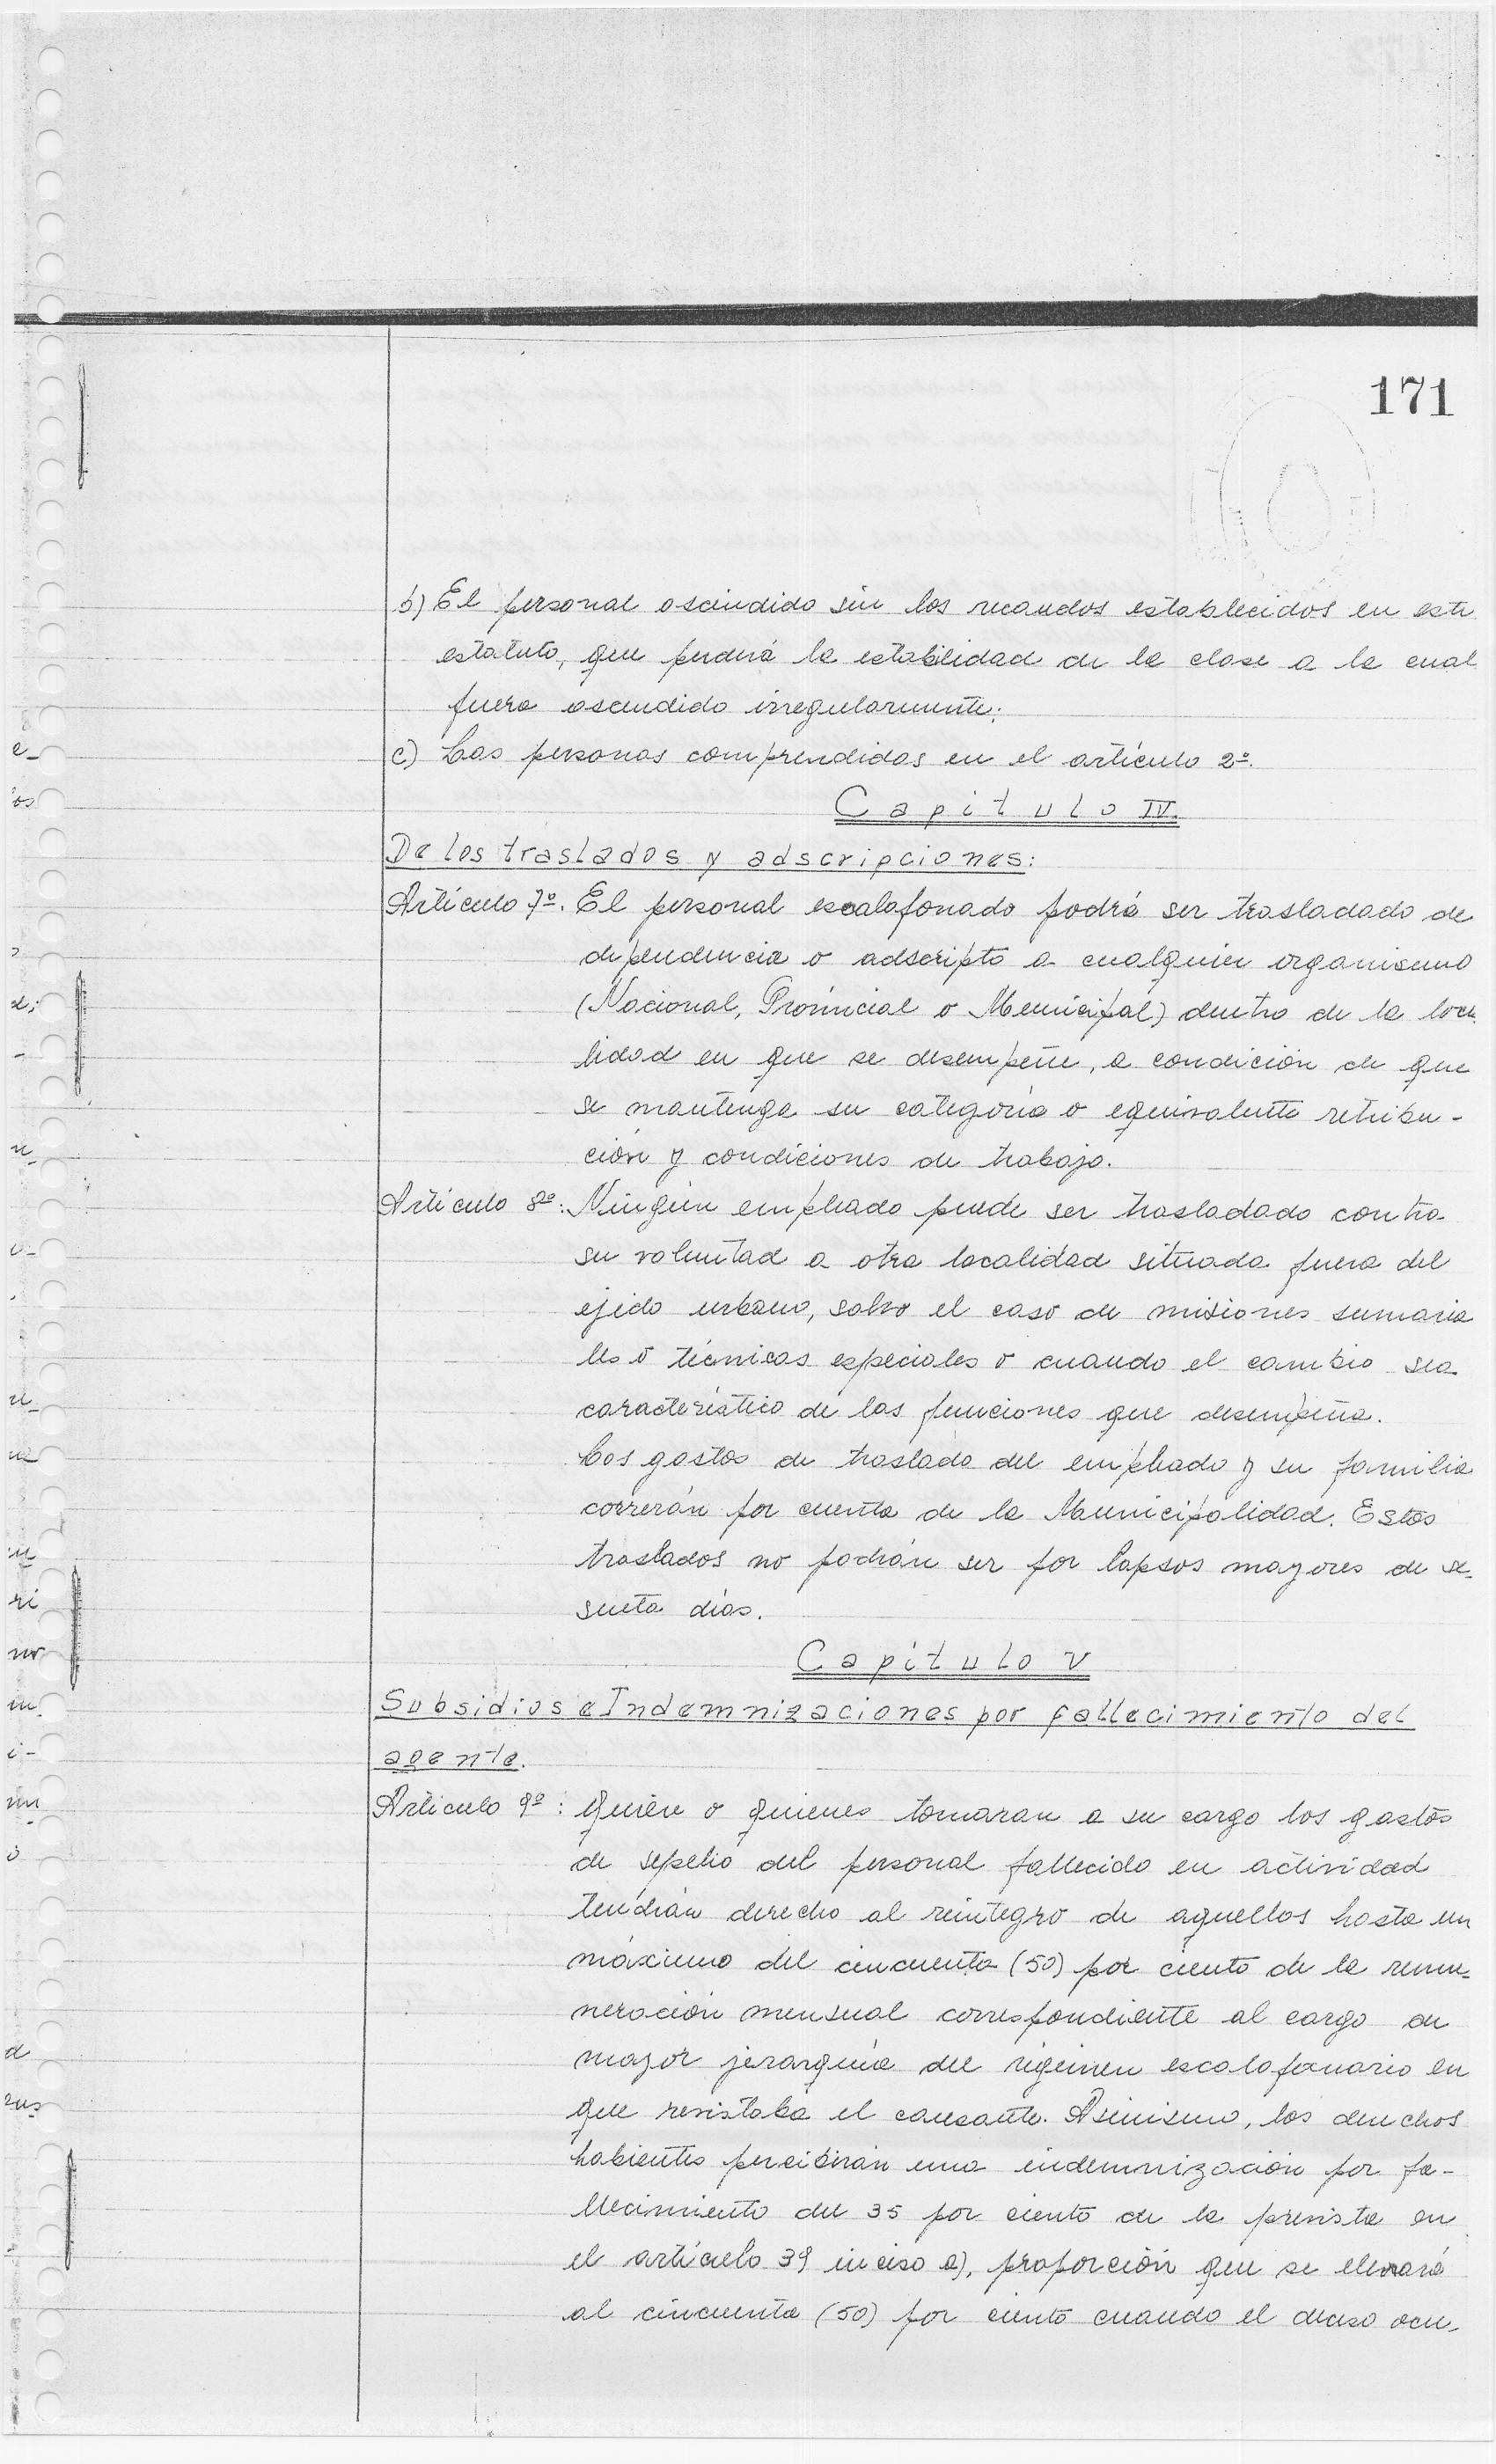 171
b) El personal ascendido sin los recaudos establecidos en este
estatuto, que perderá la estabilidad de la clase a la cual
fuera ascendido irregularmente;
c) Las personas comprendidas en el artículo 2º.
Capitulo IV.
De los traslados y adscripciones:
Artículo 7º. El personal escalafonado podrá ser trasladado de
dependencia o adscripto a cualquier organismo
(Nacional, Provincial o Municipal) dentro de la loca
lidad en que se desempeñe, a condición de que
se mantenga su categoría o equivalente retribu-
ción y condiciones de trabajo.
Artículo 8º: Ningún empleado puede ser trasladado contra
su voluntad a otra localidad situada fuera del
ejido urbano, salvo el caso de misiones sumaria
les o técnicas especiales o cuando el cambio sea
característico de las funciones que desempeña.
Los gastos de traslado del empleado y su familia
correrán por cuenta de la Municipalidad. Estos
traslados no podrán ser por lapsos mayores de se-
senta días.
Capítulo V
Subsidios e Indemnizaciones por fallecimiento del
agente.
Artículo 9º: Quien o quienes tomaran a su cargo los gastos
de sepelio del personal fallecido en actividad
tendrán derecho al reintegro de aquellos hasta un
máximo del cincuenta (50) por ciento de la remu-
neración mensual correspondiente al cargo de
mayor jerarquía del régimen escalafonario en
que revistaba el causante. Asimismo, los derechos
habientes percibirán una indemnización por fa-
llecimiento del 35 por ciento de la prevista en
el artículo 39 inciso a), proporción que se elevará
al cincuenta (50) por ciento cuando el deceso ocu-